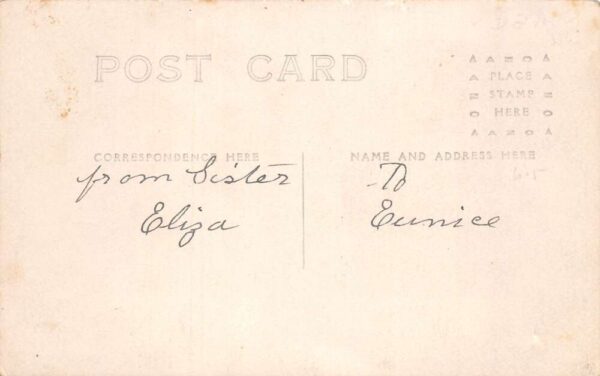 POST CARD
AZOA
PLACE
STAMP
HERE
AZOA
CORRESPONDENCE HERE
NAME AND ADDRESS HERE
from Sister
Eliza
To
Eunice